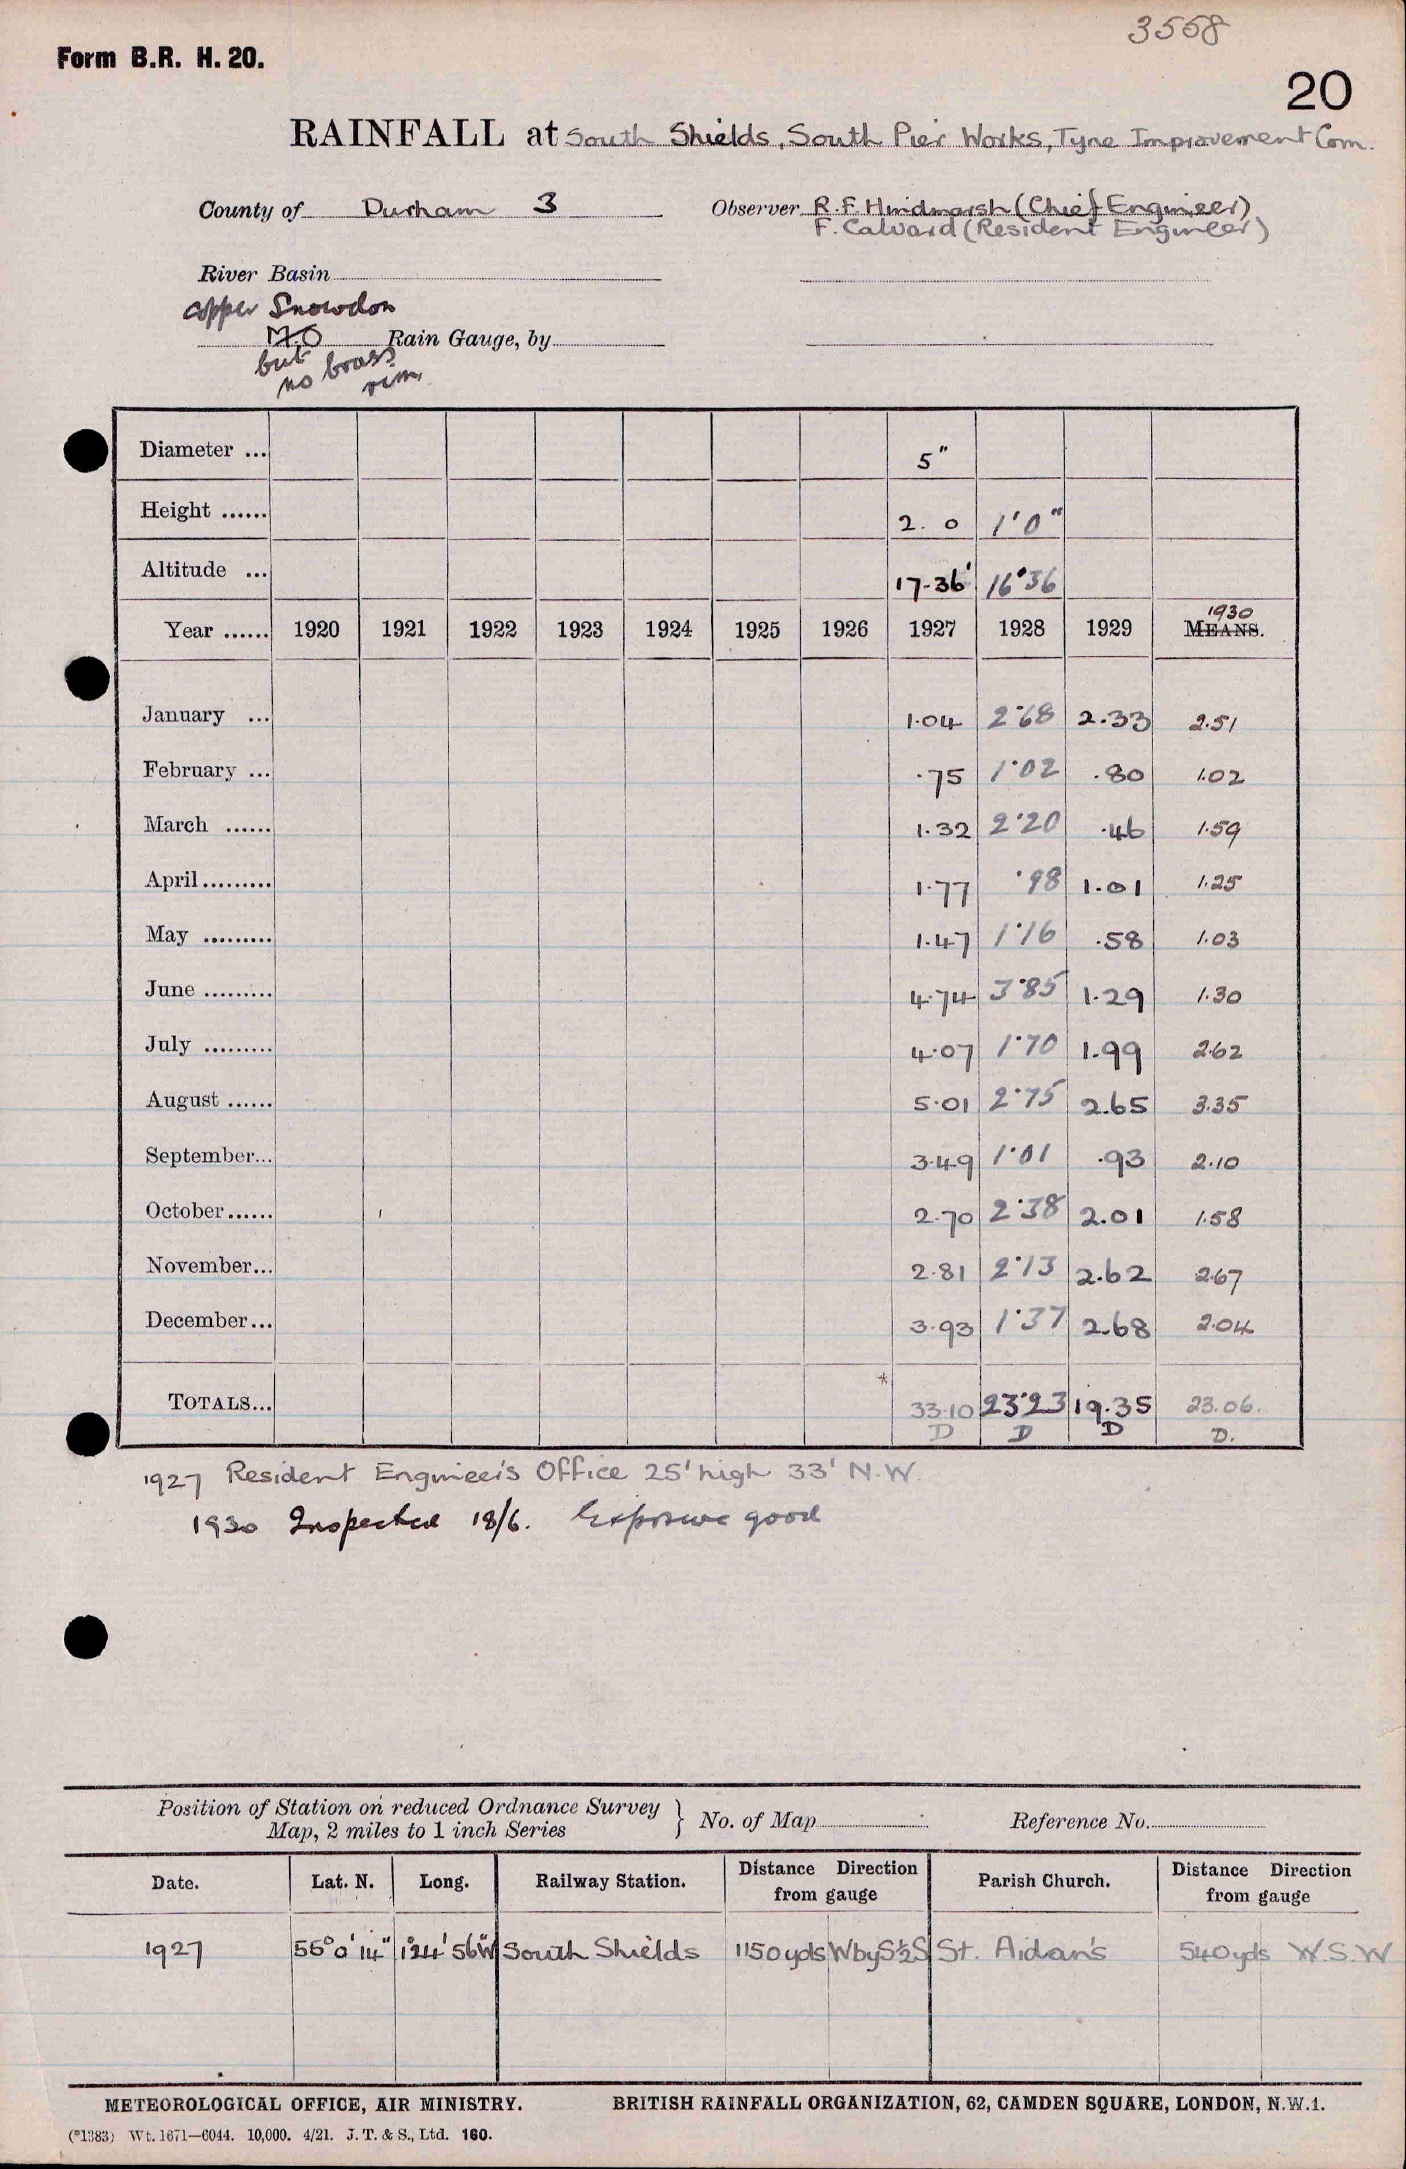 3558
Form B.R. H. 20.
20
RAINFALL at South Shields, South Pier Works, Tyne Improvement Com.
County of Durham 3 Observer R. F. Hindmarsh (Chief Engineer)
F. Calvard (Resident Engineer)
River Basin
copper Snowdon
M.O Rain Gauge, by
but no brass rim.
Diameter ... 5"
Height ...... 2. 0 1'0"
Altitude ... 17.36' 16·36
1930
Year ...... 1920 1921 1922 1923 1924 1925 1926 1927 1928 1929 MEANS.
January ... 1.04 2·68 2.33 2.51
February ... .75 1·02 .80 1.02
March ...... 1.32 2·20 .46 1.59
April ......... 1.77 ·98 1.01 1.25
May ......... 1.47 1·16 .58 1.03
June ......... 4.74 3·85 1.29 1.30
July ......... 4.07 1·70 1.99 2.62
August ...... 5.01 2·75 2.65 3.35
September... 3.49 1·01 .93 2.10
October...... 2.70 2·38 2.01 1.58
November... 2.81 2·13 2.62 2.67
December... 3.93 1·37 2.68 2.04
*
TOTALS... 33.10 23·23 19.35 23.06.
D D D D.
1927 Resident Engineer's Office 25' high 33' N.W.
1930 Inspected 18/6. Exposure good
Position of Station on reduced Ordnance Survey
Map, 2 miles to 1 inch Series } No. of Map Reference No.
Date. Lat. N. Long. Railway Station. Distance Direction from gauge Parish Church. Distance Direction from gauge
1927 55° 0' 14" 1° 24' 56" W South Shields 1150 yds W by S ½ S St. Aidan's 540 yds W.S.W
METEOROLOGICAL OFFICE, AIR MINISTRY. BRITISH RAINFALL ORGANIZATION, 62, CAMDEN SQUARE, LONDON, N.W.1.
(*1383) Wt. 1671—6044. 10,000. 4/21. J. T. & S., Ltd. 160.